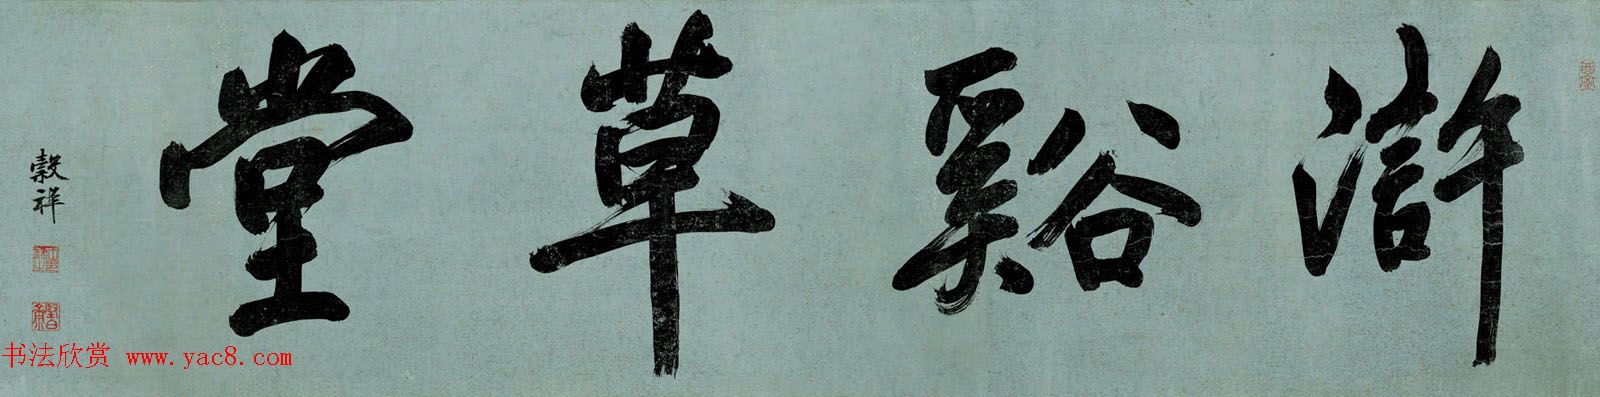 滸谿草堂
穀祥
书法欣赏 www.yac8.com